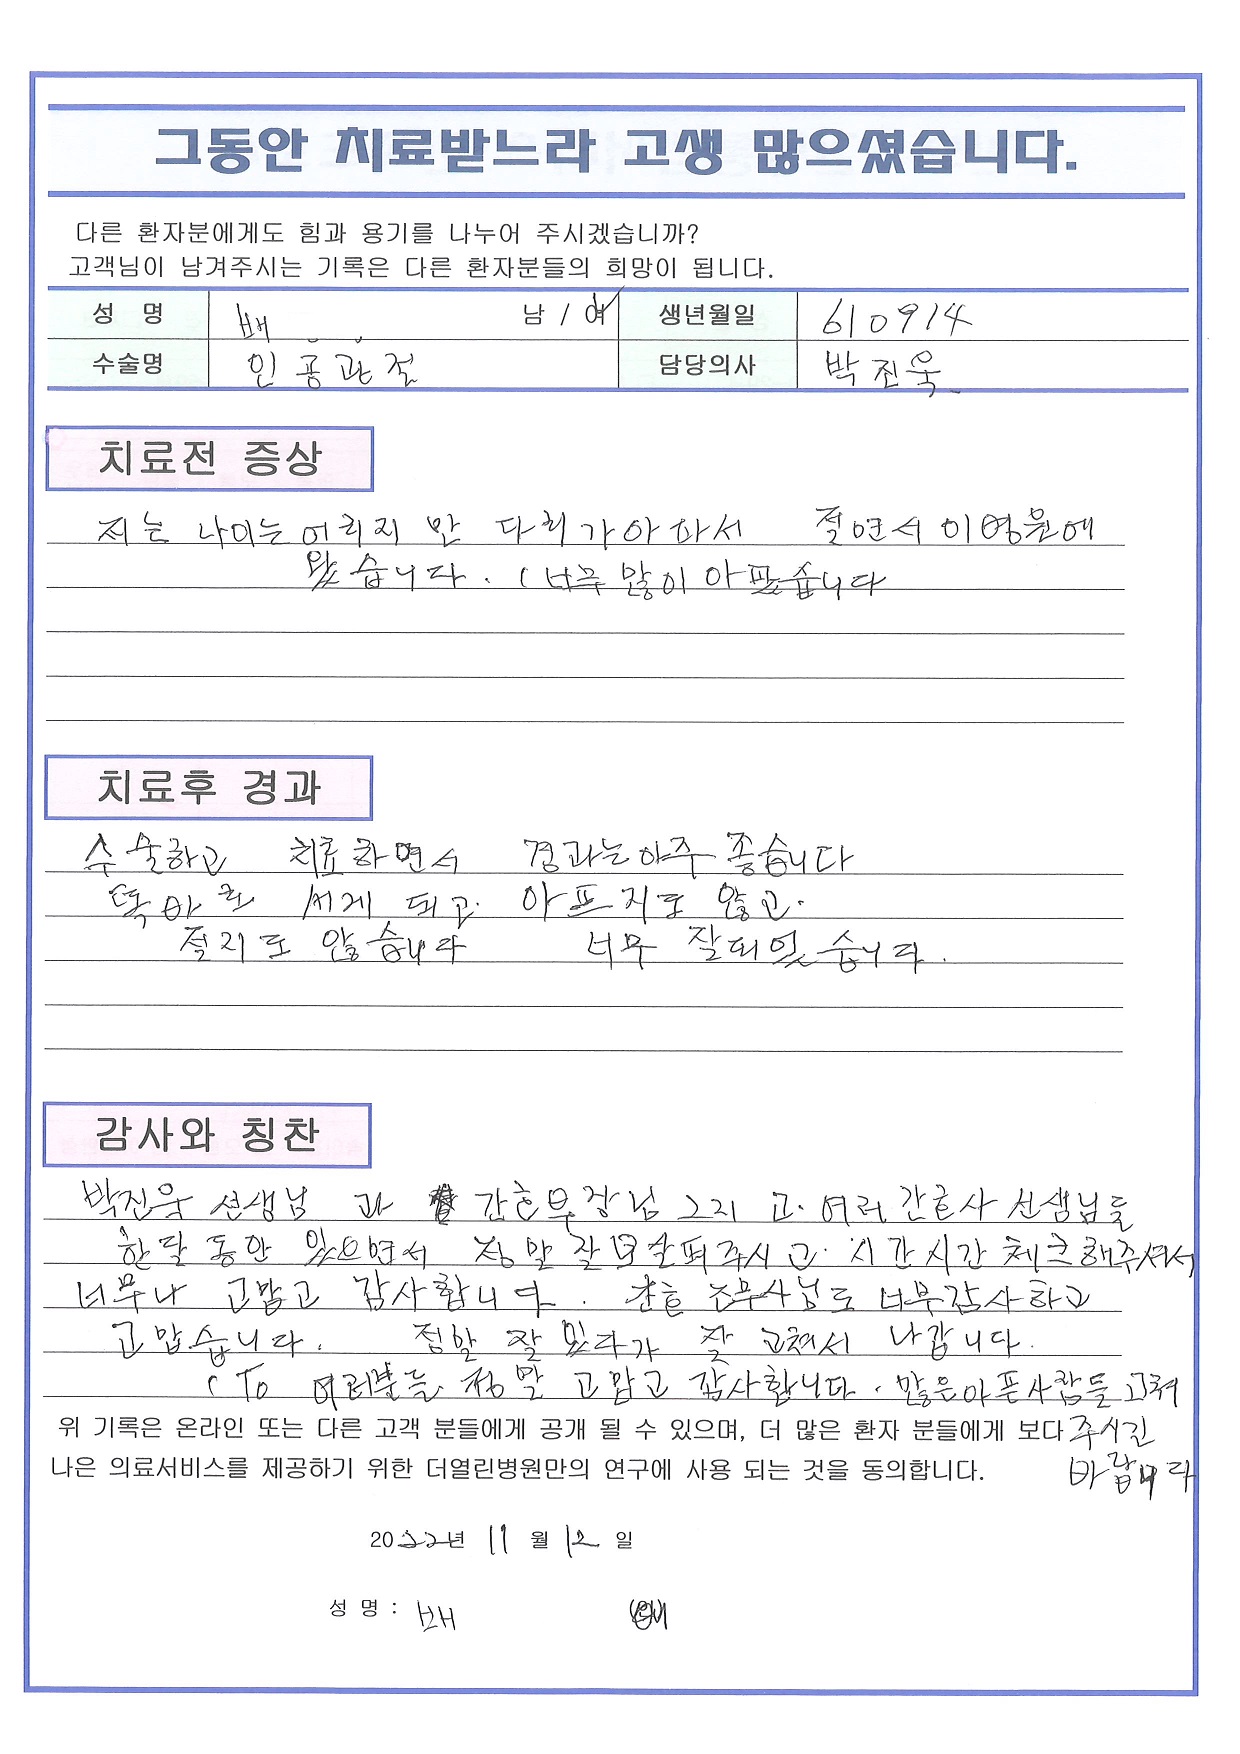 그동안 치료받느라 고생 많으셨습니다.
다른 환자분에게도 힘과 용기를 나누어 주시겠습니까?
고객님이 남겨주시는 기록은 다른 환자분들의 희망이 됩니다.
성 명 배 남 / 여 생년월일 610914
수술명 인공관절 담당의사 박진욱
치료전 증상
저는 나이는 어리지 만 다리가 아파서 절면서 이병원에
왔습니다. (너무 많이 아팠습니다
치료후 경과
수술하고 치료하면서 경과는 아주 좋습니다
똑바로 서게 되고. 아프지도 않고.
절지도 않습니다 너무 잘되었습니다.
감사와 칭찬
박진욱 선생님 과 간호부장님 그리 고. 여러 간호사 선생님들
한달 동안 있으면서 정말 잘 보살펴주시고. 시간시간 체크해주셔서
너무나 고맙고 감사합니다. 간호 조무사님도 너무감사하고
고맙습니다. 정말 잘 있다가 잘 고쳐서 나갑니다.
(To 여러분들 정말 고맙고 감사합니다. 많은아픈사람들 고쳐
위 기록은 온라인 또는 다른 고객 분들에게 공개 될 수 있으며, 더 많은 환자 분들에게 보다 주시길
나은 의료서비스를 제공하기 위한 더열린병원만의 연구에 사용 되는 것을 동의합니다. 바랍니다
2022년 11월 12일
성 명 : 배